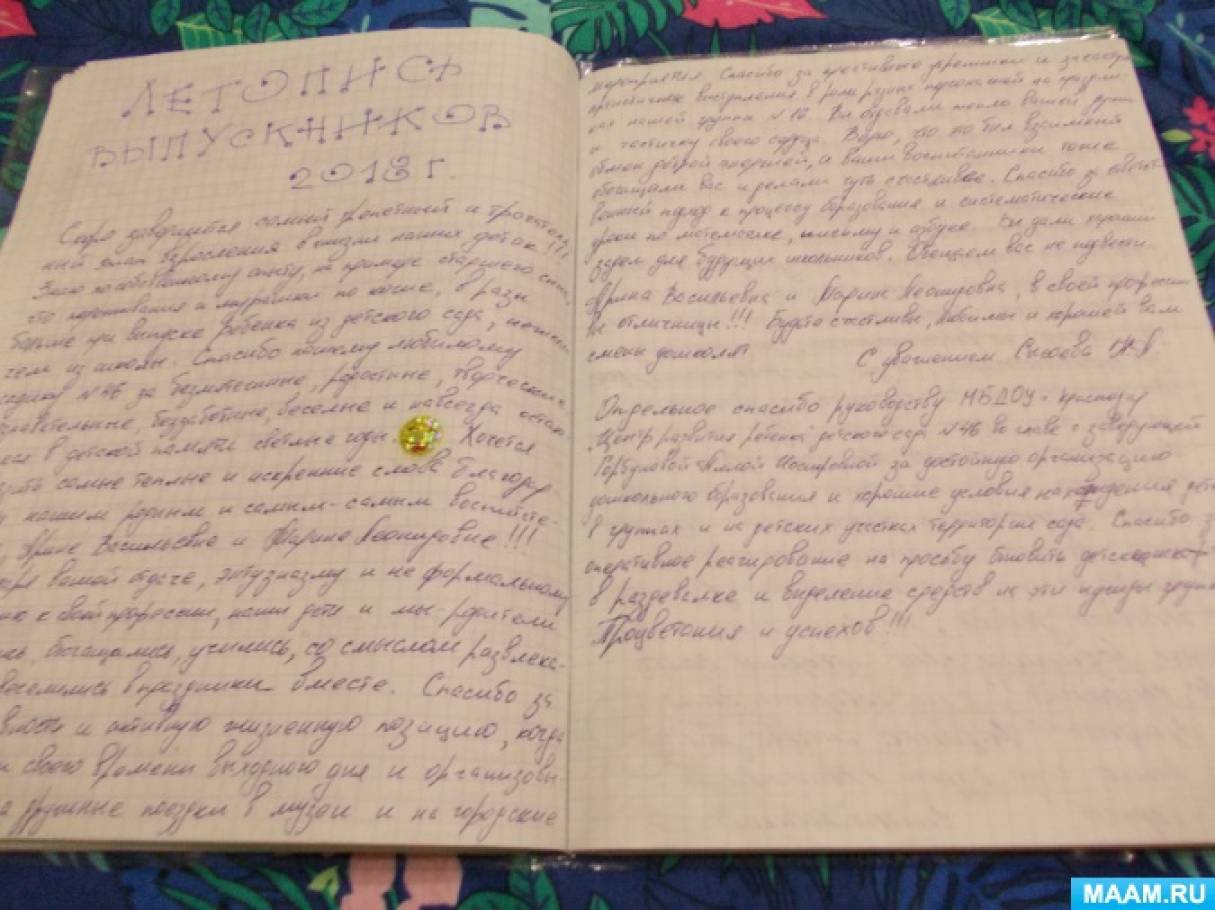 ЛЕТОПИСЬ
ВЫПУСКНИКОВ
2018 г.
Скоро завершится самый и
ный этап взросления в жизни наших деток!!!
Знаю по собственному опыту, на примере старшего сына,
что переживания и мурашки по коже, в разы
больше при выпуске ребенка из детского сада, нежели
чем из школы. Спасибо нашему любимому
садику №46 за безмятежные, радостные, творческие,
беззаботные, веселые и навсегда остав
в детской памяти светлые годы. Хочется
самые теплые и искренние слова благодар
нашим родным и самым-самым воспитате-
Арине Васильевне и Марине Леонидовне!!!
вашей отдаче, энтузиазму и не формальному
к своей профессии, наши дети и мы-родители
обогащались, учились, со смыслом развлека-
веселились в праздники вместе. Спасибо за
и активную жизненную позицию, когда
своего времени выходного дня и организовы-
дружные поездки в музеи и на городские
мероприятия. Спасибо за креативные утренники и
артистичные выступления в роли разных персонажей на праздни
ках нашей группы №16. Вы отдавали тепло вашей души
и частичку своего сердца. Верю, что то был взаимный
обмен доброй энергией, и ваши воспитанники тоже
обогащали вас и делали чуть счастливее. Спасибо за
подход к процессу образования и систематические
уроки по математике, письму и азбуке. Вы дали хороший
задел для будущих школьников. Обещаем вас не подвести.
Арина Васильевна и Марина Леонидовна, в своей професси
вы отличницы!!! Будьте счастливы, любимы и хорошей вам
смены дошколят.
С уважением
Отдельное спасибо руководству МБДОУ г. Краснодар
"Центр развития ребенка" детского сада №46 во главе с заведующей
Горбуновой Аллой за достойную организацию
дошкольного образования и хорошие условия нахождения дет
в группах и на детских участках территории сада. Спасибо з
оперативное реагирование на просьбу
в раздевалке и выделение средств на эти нужды групп
Процветания и успехов!!!
MAAM.RU